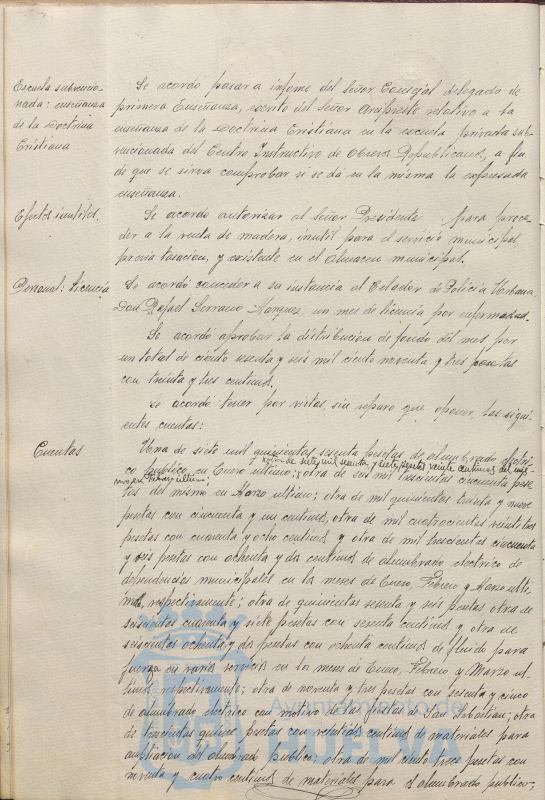 Escuela subvencio-
nada: enseñanza
de la Doctrina
Cristiana
Se acordó pasar a informe del Señor Concejal delegado de
primera Enseñanza, escrito del Señor Arcipreste relativo a la
enseñanza de la Doctrina Cristiana en la escuela privada sub-
vencionada del Centro Instructivo de Obreros Republicanos, a fin
de que se sirva comprobar si se da en la misma la expresada
enseñanza.
Efectos inutiles.
Se acordó autorizar al Señor Presidente para proce-
der a la venta de madera, inutil para el servicio municipal
previa tasacion, y existente en el almacen municipal.
Personal: Licencia
Se acordó conceder a su instancia al Celador de Policia Urbana,
Don Rafael Serrano Marquez, un mes de licencia por enfermedad.
Se acordó aprobar la distribucion de fondo del mes por
un total de ciento sesenta y seis mil ciento noventa y tres pesetas
con treinta y tres centimos.
Se acordó tener por vistas, sin reparo que oponer, las sigui-
entes cuentas:
Cuentas
Una de siete mil quinientas sesenta pesetas de alumbrado electri-
co publico en Enero ultimo; otra de seis mil trescientas cincuenta pese-
otra de siete mil sesenta y siete pesetas veinte centimos del mis-
mo en Febrero ultimo;
tas del mismo en Marzo ultimo; otra de mil quinientas treinta y nueve
pesetas con cincuenta y un centimos, otra de mil cuatrocientas veintitres
pesetas con cuarenta y ocho centimos y otra de mil trescientas cincuenta
y seis pesetas con ochenta y dos centimos de alumbrado electrico de
dependencias municipales en los meses de Enero, Febrero y Marzo ulti-
mos, respectivamente; otra de quinientas sesenta y seis pesetas otra de
seiscientas cuarenta y siete pesetas con sesenta centimos y otra de
seiscientas ochenta y dos pesetas con ochenta centimos de fluido para
fuerza en varios servicios en los meses de Enero, Febrero y Marzo ul-
timos respectivamente; otra de noventa y tres pesetas con sesenta y cinco
de alumbrado electrico con motivo de las fiestas de San Sebastian; otra
de trescientas quince pesetas con veintidos centimos de materiales para
ampliacion del alumbrado publico; otra de mil ciento trece pesetas con
noventa y cuatro centimos de materiales para el alumbrado publico;
Ayuntamiento de
HUELVA